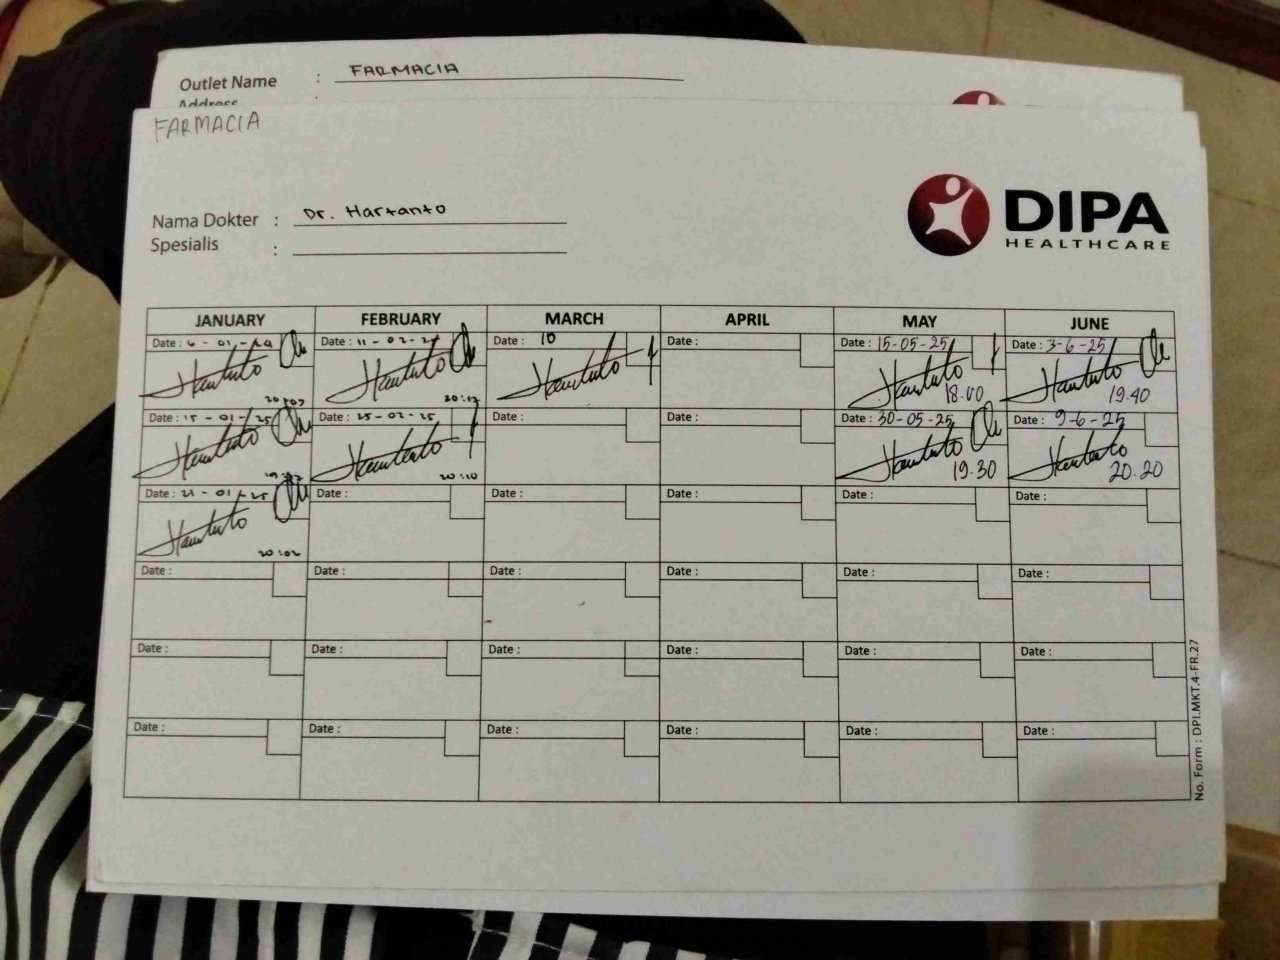 Outlet Name : FARMACIA
Address :
FARMACIA
Nama Dokter : Dr. Hartanto
Spesialis :
DIPA
HEALTHCARE
JANUARY FEBRUARY MARCH APRIL MAY JUNE
Date : 6 - 01 - Date : 11 - 02 - 25 Date : 10 Date : Date : 15-05-25 Date : 3-6-25
20:03 20:12 18.00 19.40
Date : 15 - 01 - 25 Date : 25 - 02 - 25 Date : Date : Date : 30-05-25 Date : 9-6-25
20:10 19.30 20.20
Date : 21 - 01 - 25 Date : Date : Date : Date : Date :
20:02
Date : Date : Date : Date : Date : Date :
Date : Date : Date : Date : Date : Date :
Date : Date : Date : Date : Date : Date :
No. Form : DPI.MKT.4-FR.27